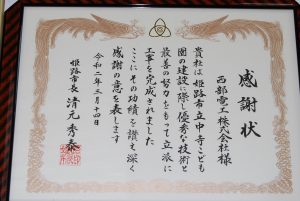 感謝状
西部電工株式会社様
貴社は姫路市立中寺こども
園の建設に際し優秀な技術と
最善の努力をもって立派に
工事を完成されました
ここにその功績を讃え深く
感謝の意を表します
令和二年三月十四日
姫路市長 清元秀泰